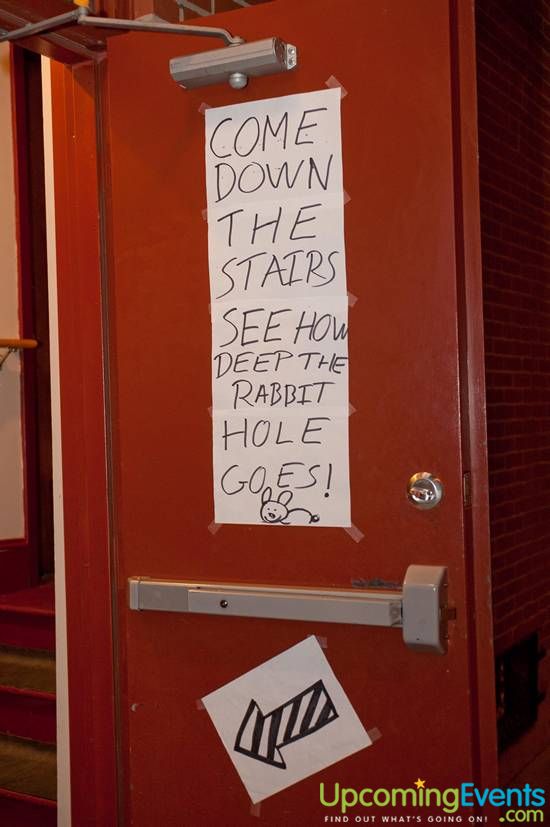 COME
DOWN
THE
STAIRS
SEE HOW
DEEP THE
RABBIT
HOLE
GOES!
UpcomingEvents
.com
FIND OUT WHAT'S GOING ON!